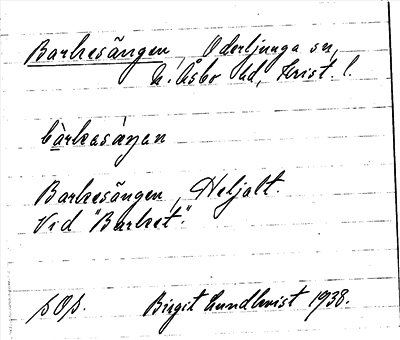 Barkesängen, Oderljunga sn,
N. Åsbo hd, Krist. l.
bàrkasàŋen
Barkesängen, Heljalt.
Vid "Barket".
pOp. Birgit Lundkvist 1938.